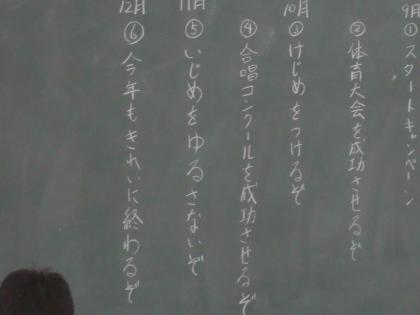 9月①スタートキャンペーン
②体育大会を成功させるぞ
10月③けじめをつけるぞ
④合唱コンクールを成功させるぞ
11月⑤いじめをゆるさないぞ
12月⑥今年もきれいに終わるぞ